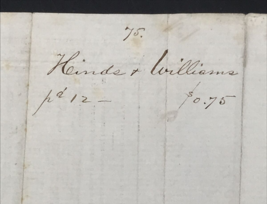 75.
Hinds & Williams
pd 12 — $0.75